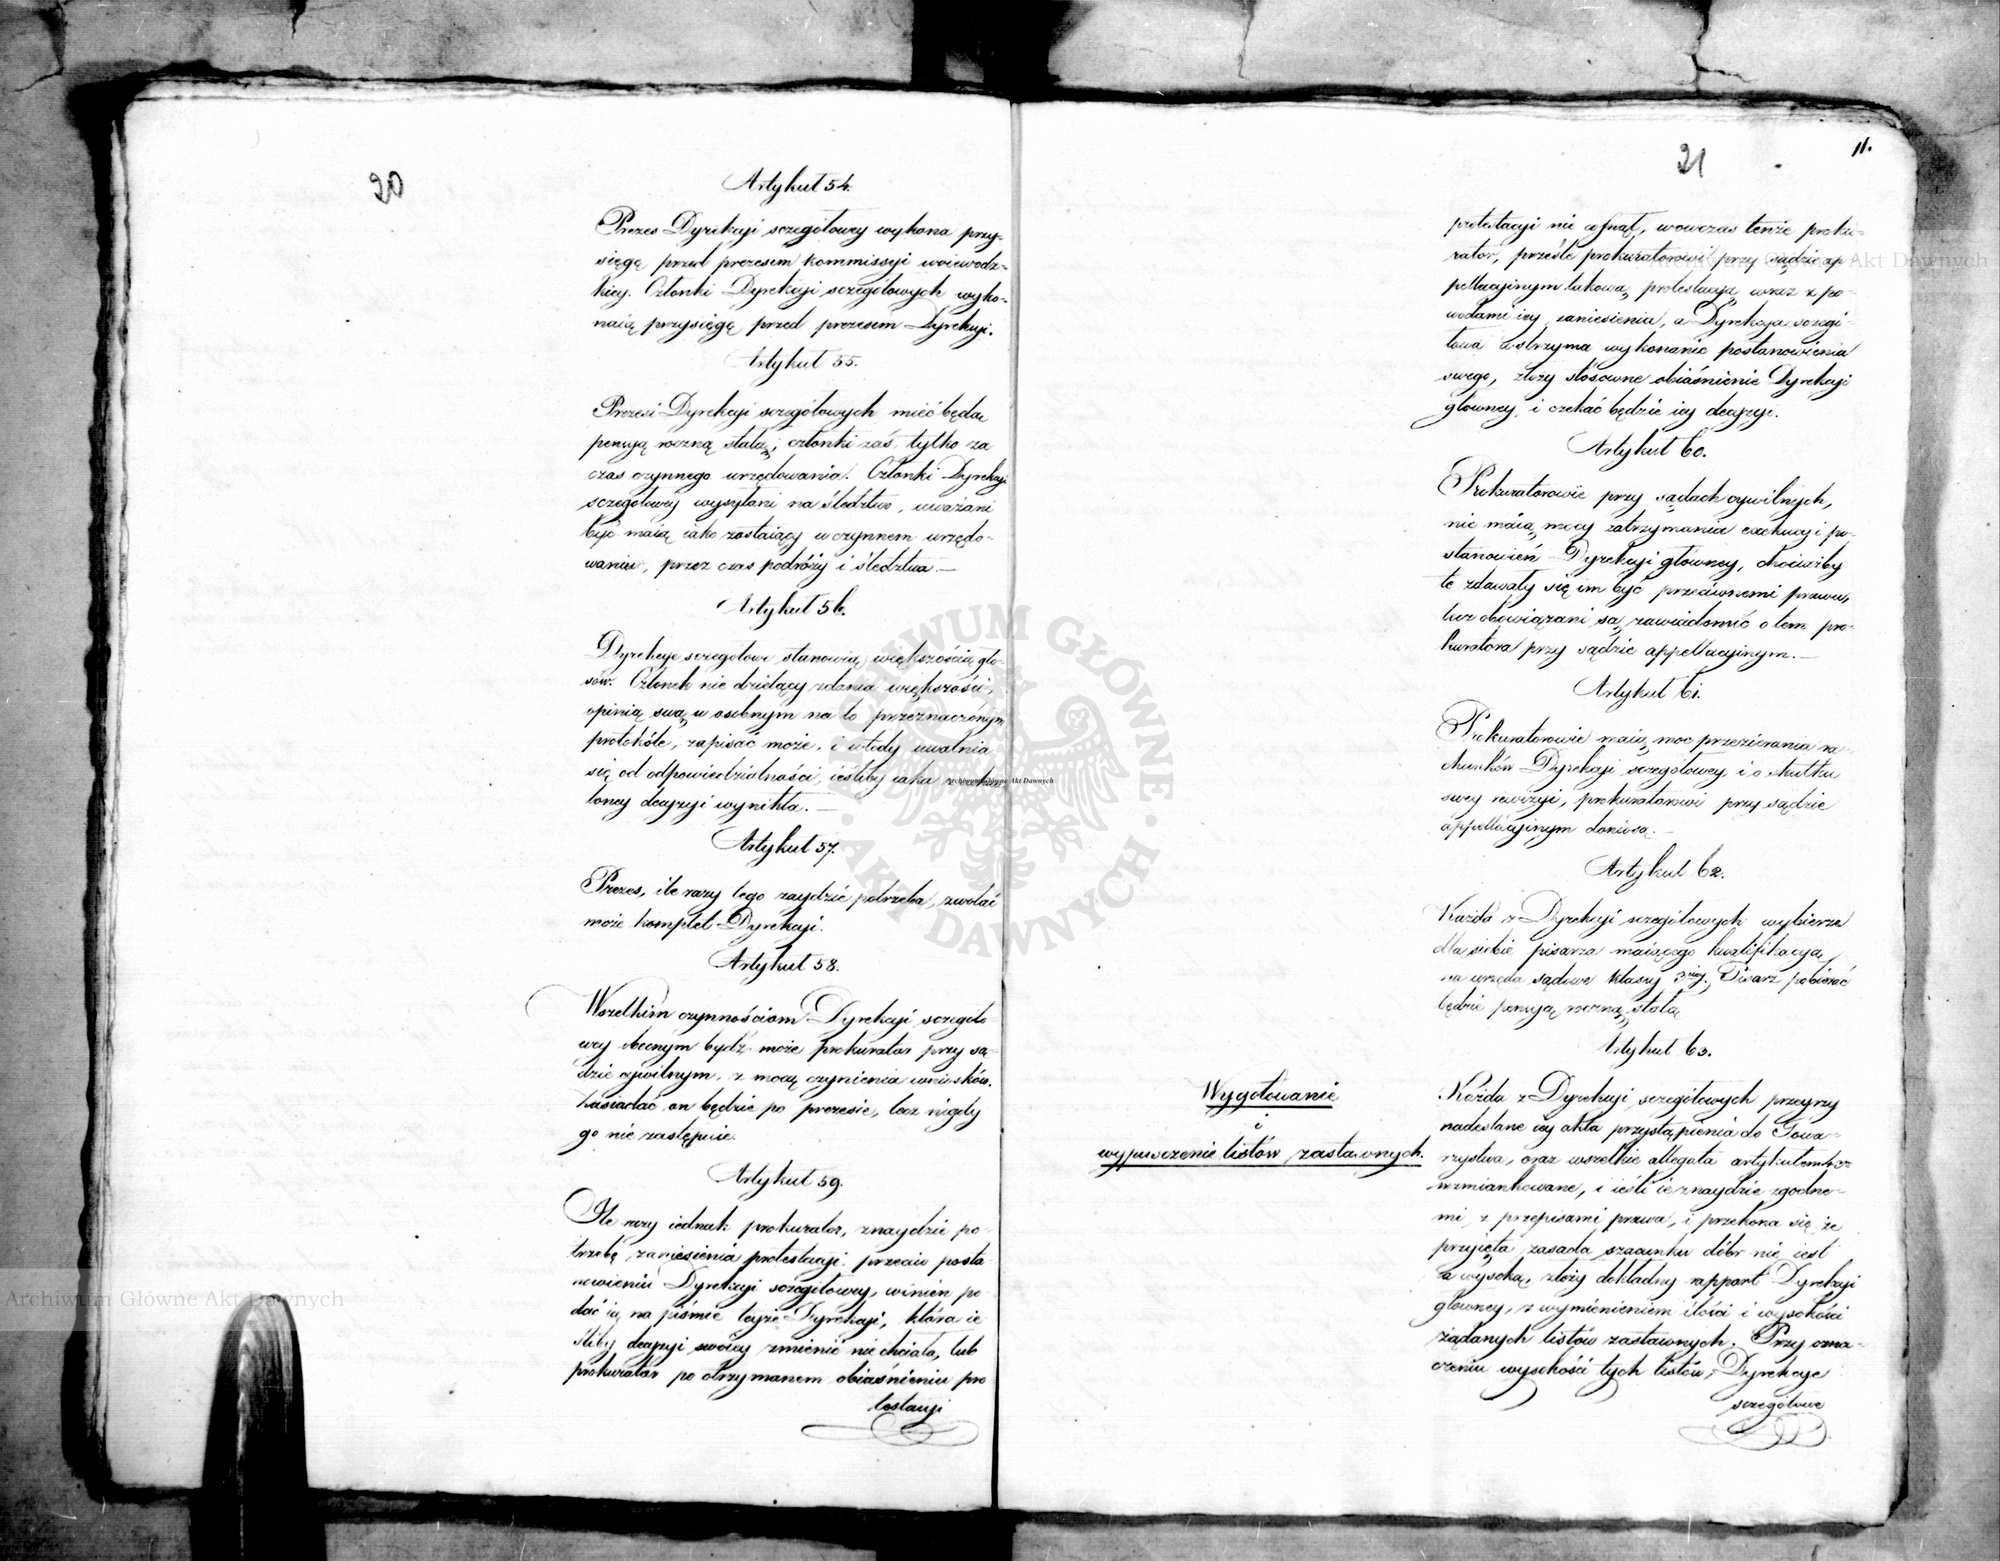 20
Artykuł 54.
Prezes Dyrekcyi sczegółowey wykona przy-
sięgę przed prezesem kommissyi woiewodz-
kiey. Członki Dyrekcyi sczegółowych wyko-
naią przysięgę przed prezesem Dyrekcyi.
Artykuł 55.
Prezesi Dyrekcyi sczegółowych mieć będą
pensyą roczną stałą; członki zaś tylko za
czas czynnego urzędowania. Członki Dyrekcyi
sczegółowey wysyłani na śledztwo, uważani
być maią iako zostaiący w czynnem urzędo-
waniu, przez czas podróży i śledztwa.—
Artykuł 56.
Dyrekcye sczegółowe stanowią większością gło-
sów. Członek nie dzielący zdania większości,
opinią swą w osobnym na to przeznaczonym
protokóle, zapisać może, i wtedy uwalnia
się od odpowiedzialności, ieśliby iaka z
loney decyzyi wynikła.—
Artykuł 57.
Prezes, ile razy tego zaydzie potrzeba, zwołać
może komplet Dyrekcyi.
Artykuł 58.
Wszelkim czynnościom Dyrekcyi sczegóło
wey obecnym bydź może prokurator przy są-
dzie cywilnym, z mocą czynienia wniosków.
Zasiadać on będzie po prezesie, lecz nigdy
go nie zastępuie.
Artykuł 59.
Ile razy iednak prokurator, znaydzie po-
trzebę zaniesienia protestacyi przeciw posta
nowieniu Dyrekcyi sczegółowey, winien po
dać ią na piśmie teyże Dyrekcyi, która ie
śliby decyzyi swoiey zmienić nie chciała, lub
prokurator po otrzymanem obiaśnieniu pro
testacyi
21
11.
protestacyi nie cofnął, wowczas tenże proku-
rator, prześle prokuratorowi przy sądzie ap
pellacyinym takową protestacyą wraz z po-
wodami iey zaniesienia, a Dyrekcya sczegó-
łowa wstrzyma wykonanie postanowienia
swego, złoży stosowne obiaśnienie Dyrekcyi
głowney, i czekać będzie iey decyzyi.
Artykuł 60.
Prokuratorowie przy sądach cywilnych,
nie maią mocy zatrzymania exekucyi po-
stanowień Dyrekcyi głowney, chociażby
te zdawały się im być przeciwnemi prawu,
lecz obowiązani są zawiadomić o tem pro-
kuratora przy sądzie appellacyinym.—
Artykuł 61.
Prokuratorowie maią moc przezierania ra-
chunków Dyrekcyi sczegółowey i o skutku
swey rewizyi, prokuratorowi przy sądzie
appellacyinym doniosą.—
Artykuł 62.
Każda z Dyrekcyi sczegółowych wybierze
dla siebie pisarza maiącego kwalifikacyą
na urzęda sądowe klassy 3ciey. Pisarz pobierać
będzie pensyą roczną stałą
Artykuł 63.
Wygotowanie
i
wypuszczenie listów zastawnych.
Każda z Dyrekcyi sczegółowych przeyrzy
nadesłane iey akta przystąpienia do Towa-
rzystwa, oraz wszelkie allegata artykułem
wzmiankowane, i ieśli ie znaydzie zgodne-
mi z przepisami prawa, i przekona się, że
przyięta zasada szacunku dóbr nie iest
za wysoką, złoży dokładny rapport Dyrekcyi
głowney, z wymienieniem ilości i wysokości
żądanych listów zastawnych. Przy ozna-
czeniu wysokości tych listów, Dyrekcye
sczegółowe
Archiwum Główne Akt Dawnych
Archiwum Główne Akt Dawnych
ARCHIWUM GŁÓWNE · AKT DAWNYCH ·
Archiwum Główne Akt Dawnych